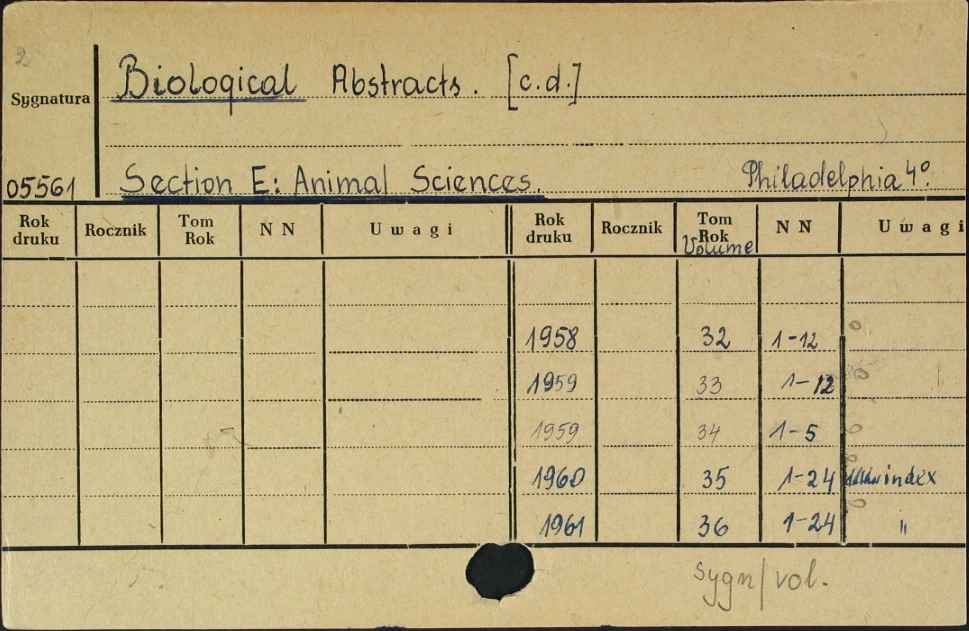 2
Biological Abstracts. [c.d.]
Sygnatura
05561 Section E: Animal Sciences. Philadelphia 4º.
Rok druku Rocznik Tom Rok N N Uwagi Rok druku Rocznik Tom Rok Volume N N Uwagi
1958 32 1-12
1959 33 1-12
1959 34 1-5
1960 35 1-24 index
1961 36 1-24 "
sygn/vol.